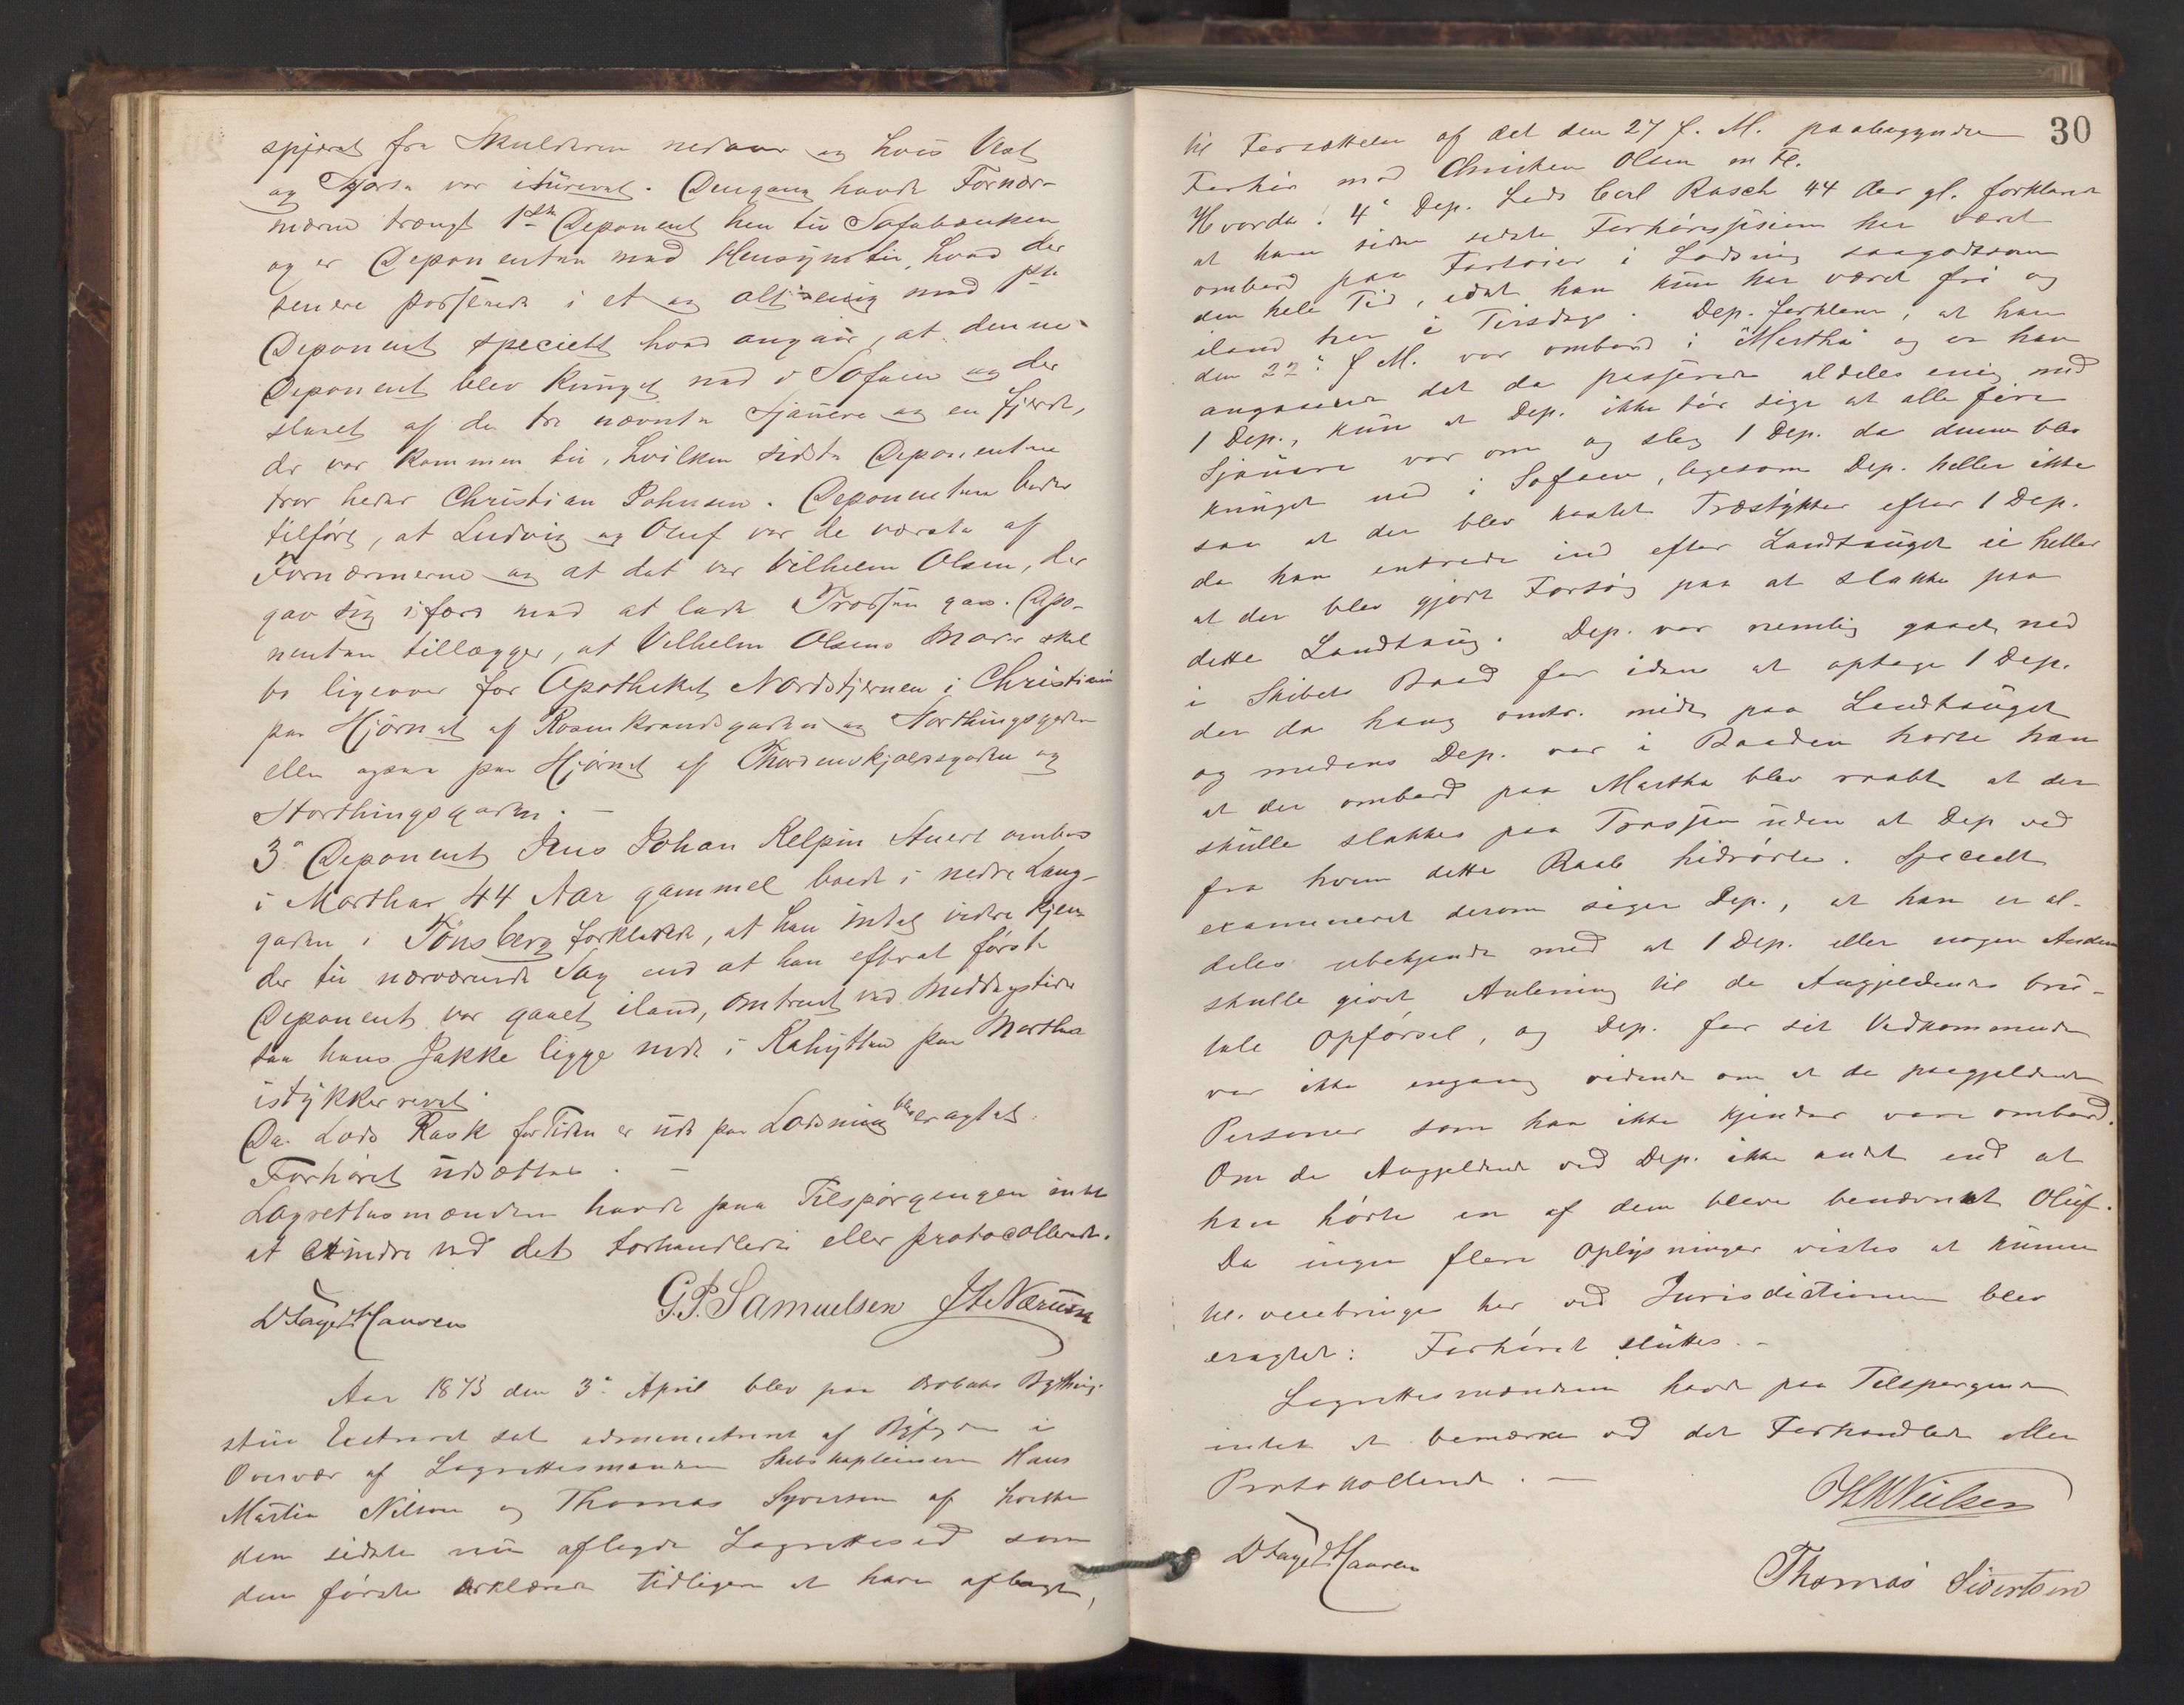 spjeret fra Skulderen nedover og hvis Vest
og Skjorte var itureven. Dengang havde Fornær-
merne trængt 1ste Deponent hen til Sofabænken
og er Deponenten med Hensyn til, hvad der
senere passerede i et og alt enig med 1ste
Deponent specielt hvad angaar, at denne
Deponent blev kunget ned i Sofaen og der
slaaet af de tre nævnte Sjauere og en fjerde,
der var kommen til, hvilken sidste Deponenten
tror heder Christian Johnsen. Deponenten beder
tilført, at Ludvig og Oluf var de værste af
Fornærmerne og at det var Vilhelm Olsen, der
gav sig ifærd med at lade Trossen gaa. Depo-
nenten tillægger, at Vilhelm Olsens Moder skal
bo ligeover for Apotheket Nordstjernen i Christiania
paa Hjørnet af Rosenkrandsgaden og Storthingsgaden
eller ogsaa paa Hjørnet af Thordenskjoldsgaden og
Storthingsgaden. —
3die Deponent Jens Johan Kelpin Stuert ombord
i Martha 44 Aar gammel boede i nedre Lang-
gaden i Tønsberg forklarede, at han intet videre kjen-
der til nærværende Sag end at han efterat første
Deponent var gaaet iland, omtrent ved Middagstider
saa hans Jakke ligge nede i Kahytten paa Martha
istykkerrevet.
Da Lods Rask for Tiden er ude paa Lodsning blev eragtet.
Forhøret udsættes. —
Lagrettesmændene havde paa Tilspørgengen intet
at erindre ved det forhandlede eller protocollerede.
D Faye Hansen G.P. Samuelsen J H Nærum
Aar 1873 den 3die April blev paa Bything-
stue Extraret sat administreret af Byfogden i
Overvær af Lagrettesmænden Skibskapteinerne Hans
Martin Nilsen og Thomas Syvertsen af hvilke
den sidste nu aflagde Lagrettesed som
den første erklærede tidligere at have aflagt,
30
til Fortsættelse af det den 27 f. M. paabegyndte
Forhør mod Christian Olsen m Fl.
Hvorda: 4de Dep. Lods Carl Rasch 44 Aar gl. forklarede
at han siden sidste Forhørssession har været
ombord paa Fartøier i Lodsning saagodtsom
den hele Tid, idet han kun har været fri og
iland her i Tirsdags. Dep. forklarer, at han
den 22de f M. var ombord i "Martha" og er han
angaaende det da passerede aldeles enig med
1 Dep., kun at Dep. ikke tør sige at alle fire
Sjauere var om og slog 1 Dep. da denne blev
kunget ned i Sofaen, ligesom Dep. heller ikke
saa at der blev kastet Træstykker efter 1 Dep.
da han entrede ind efter Landtauget ei heller
at der blev gjort Forsøg paa at slakke paa
dette Landtaug. Dep. var nemlig gaaet ned
i Skibets Baad for iden at optage 1 Dep.
der da hang omtr. midt paa Landtauget
og medens Dep. var i Baaden hørte han
at der ombord paa Martha blev raabt at der
skulle slakkes paa Trossen uden at Dep ved
fra hvem dette Raab hidrørte. Specielt
examineret derom siger Dep., at han er al-
deles ubekjendt med at 1 Dep. eller nogen Anden
skulle givet Anledning til de Angjeldendes bru-
tale Opførsel, og Dep. for sit Vedkommende
var ikke engang vidende om at de paagjeldende
Personer som han ikke kjender vare ombord.
Om de Angjeldende ved Dep. ikke andet end at
han hørte en af dem bleve benævnt Oluf.
Da ingen flere Oplysninger vistes at kunne
tilveiebringes her ved Jurisdictionen blev
eragtet: Forhøret sluttes. —
Lagrettesmændene havde paa Tilspørgende
intet at bemærke ved det Forhandlede eller
Protokollerede. —
H M Nielsen
D Faye Hansen
Thomas Sivertsen